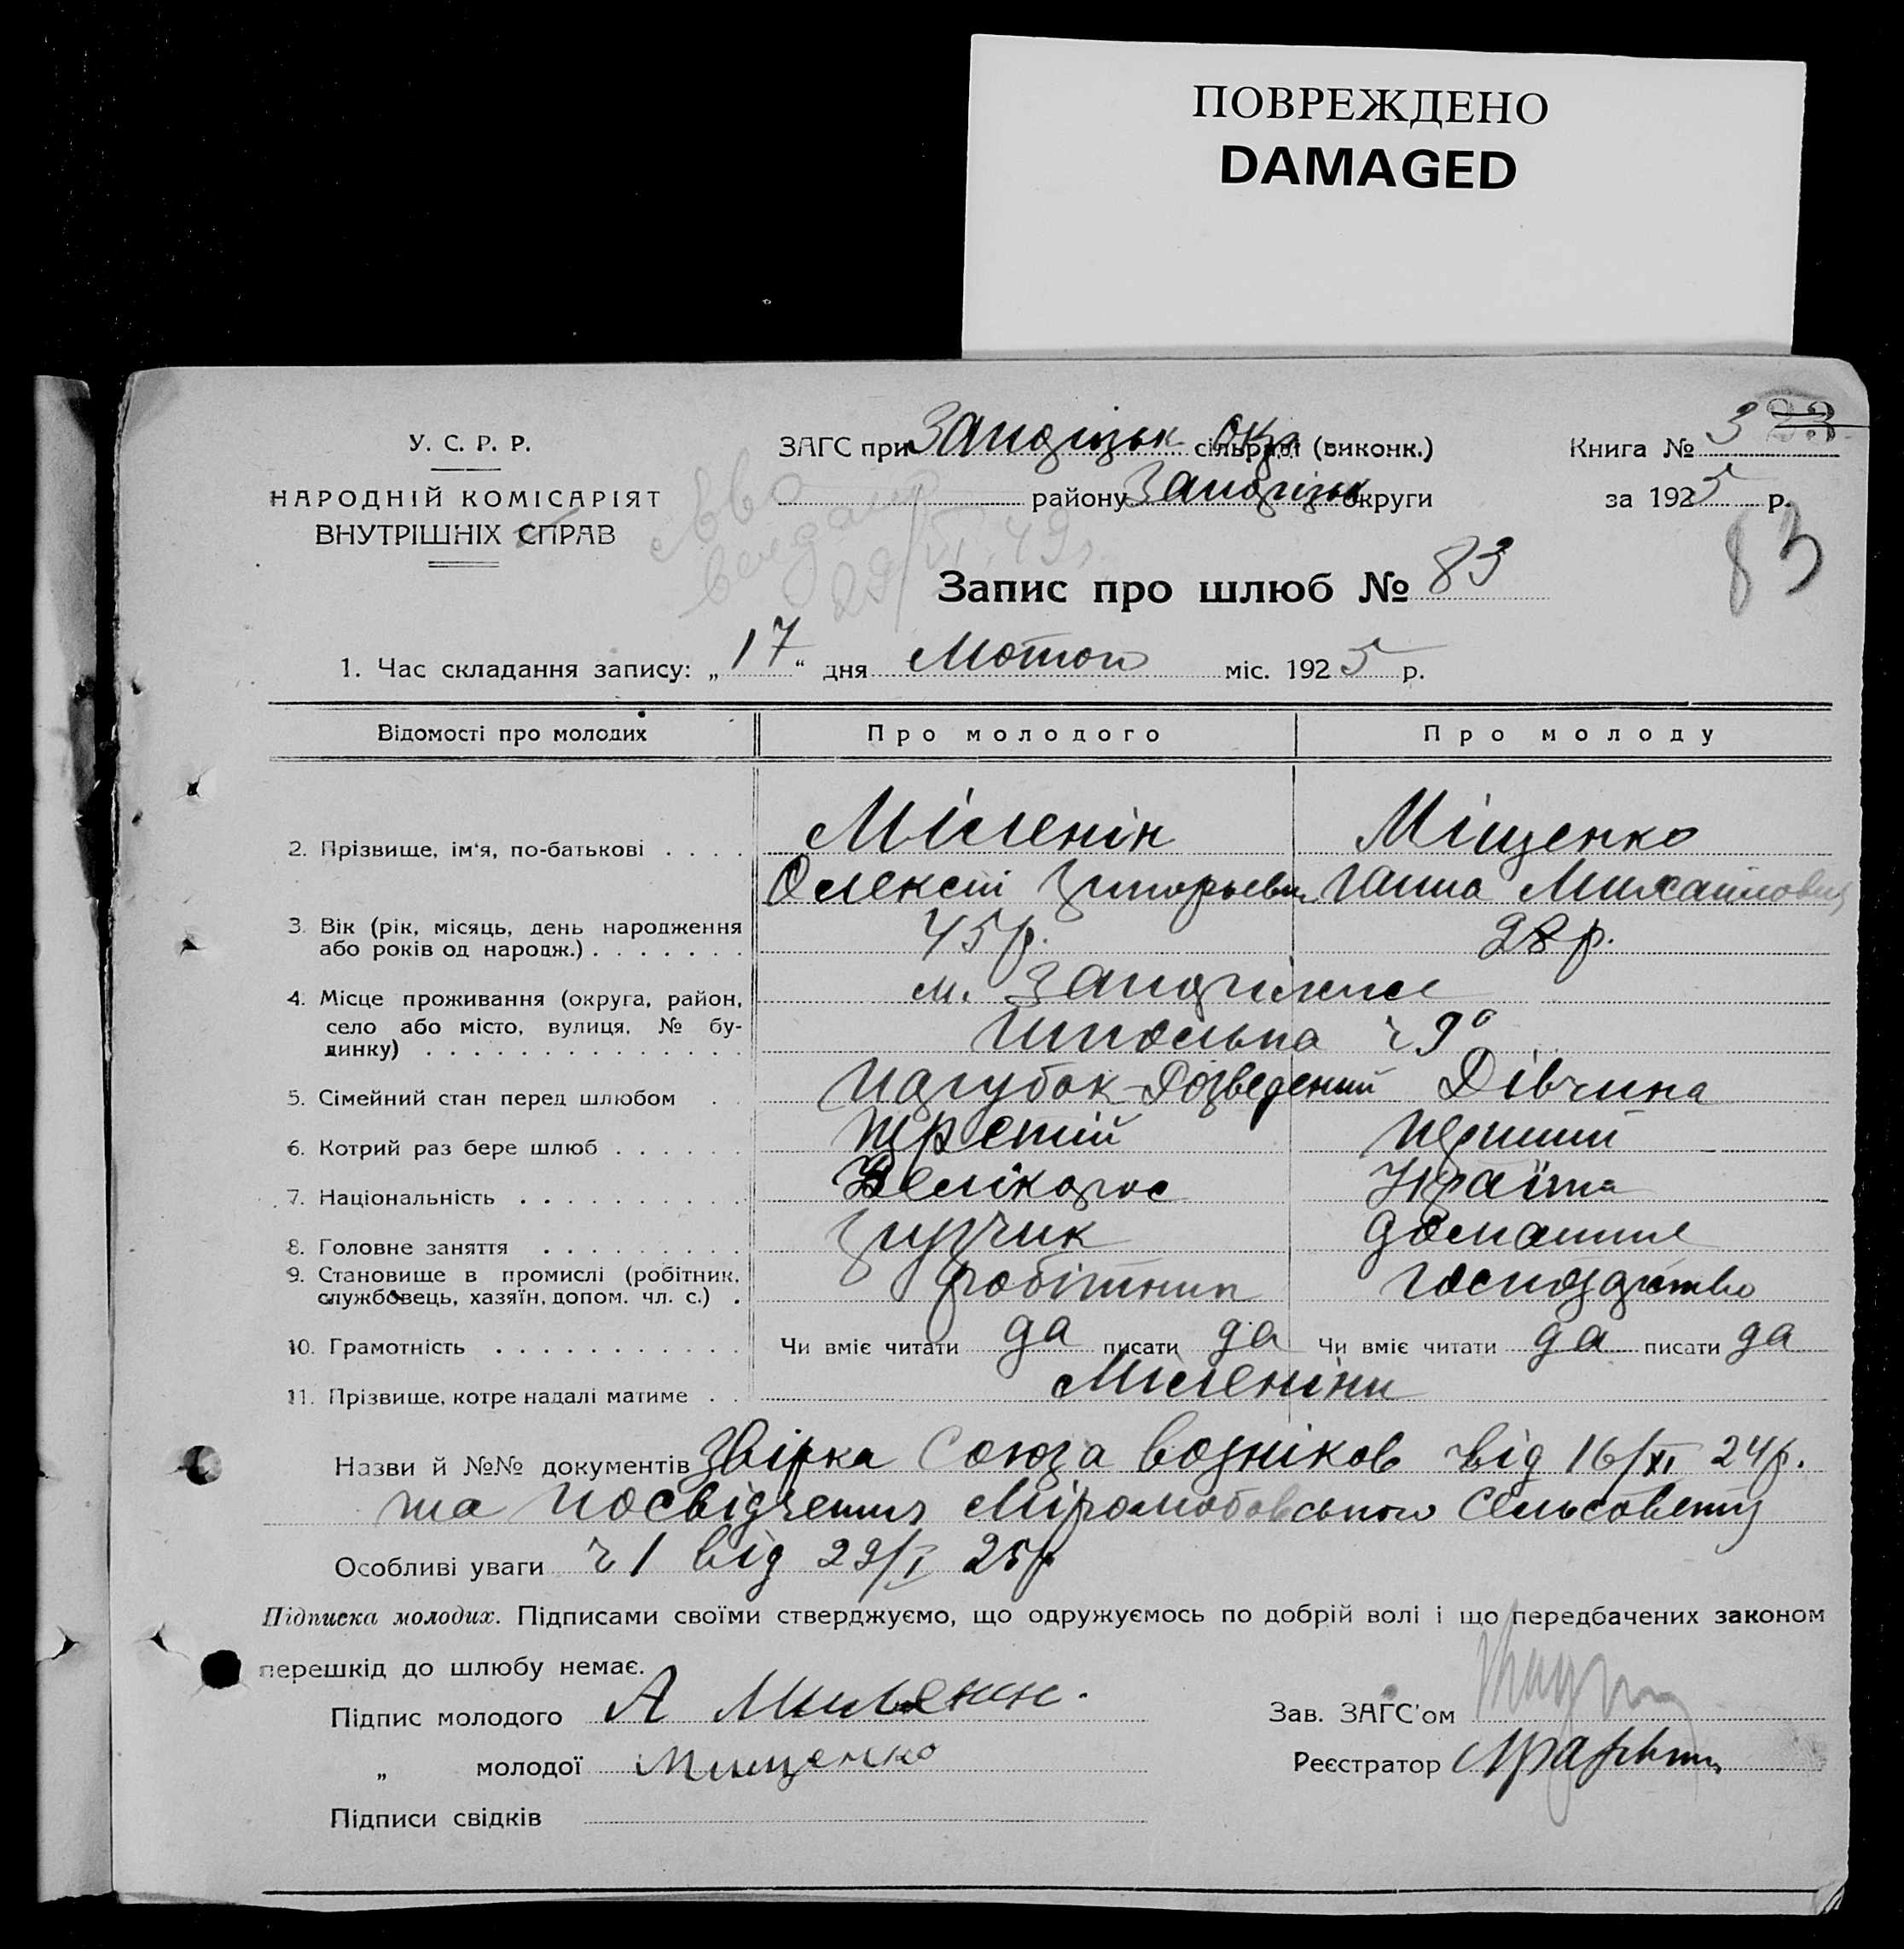 ПОВРЕЖДЕНО
DAMAGED
У. С. Р. Р.
НАРОДНІЙ КОМІСАРІЯТ
ВНУТРІШНІХ СПРАВ
ЗАГС при Запорізьк окр. сільради (виконк.)
району Запорізьк округи
Книга № 3
за 1925 р.
83
29/VI. 49 г.
Запис про шлюб № 83
1. Час складання запису: „17“ дня Лютого міс. 1925 р.
Відомості про молодих Про молодого Про молоду
2. Прізвище, ім'я, по-батькові . . . . Міленін Міщенко
Олексій Григорьевич Ганна Михайловна
3. Вік (рік, місяць, день народження
або років од народж.) . . . . . . . 45 р. 28 р.
4. Місце проживання (округа, район,
село або місто, вулиця, № бу-
динку) . . . . . . . . . . . . . м. Запоріжжє
Шкільна ч 9
5. Сімейний стан перед шлюбом . . Парубок-Розведений Дівчина
6. Котрий раз бере шлюб . . . . . . Третій Перший
7. Національність . . . . . . . . . . Велікорос Україна
8. Головне заняття . . . . . . . . . Грузчик домашнє
9. Становище в промислі (робітник,
службовець, хазяїн, допом. чл. с.) . робітник господарство
10. Грамотність . . . . . . . . . . . Чи вміє читати да писати да Чи вміє читати да писати да
11. Прізвище, котре надалі матиме . . Міленіни
Назви й №№ документів Звірка Союза водніков від 16/XI 24 р.
та посвідчення сельсовету
Особливі уваги ч 1 від 29/I 25 р
Підписка молодих. Підписами своїми стверджуємо, що одружуємось по добрій волі і що передбачених законом
перешкід до шлюбу немає.
Підпис молодого А Миленин.
Зав. ЗАГС'ом
„ молодої Мищенко
Реєстратор
Підписи свідків